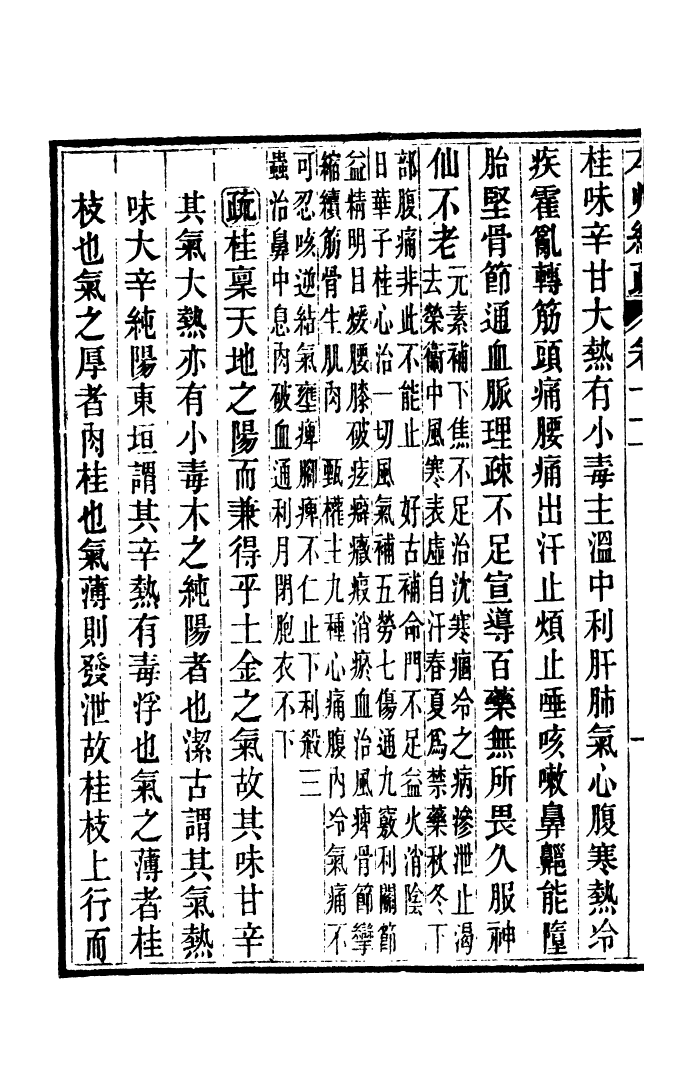 桂味辛甘大熱有小毒主溫中利肝肺氣心腹寒熱冷
疾霍亂轉筋頭痛腰痛出汗止煩止唾咳嗽鼻齆能墮
胎堅骨節通血脈理疎不足宣導百藥無所畏久服神
仙不老
元素補下焦不足治沈寒痼冷之病滲泄止渴
去榮衞中風寒表虛自汗春夏爲禁藥秋冬下
部腹痛非此不能止 好古補命門不足益火消陰
日華子桂心治一切風氣補五勞七傷通九竅利關節
益精明目煖腰膝破痃癖癥瘕消瘀血治風痺骨節攣
縮續筋骨生肌肉 甄權主九種心痛腹內冷氣痛不
可忍咳逆結氣壅痺腳痺不仁止下利殺三
蟲治鼻中息肉破血通利月閉胞衣不下
疏桂稟天地之陽而兼得乎土金之氣故其味甘辛
其氣大熱亦有小毒木之純陽者也潔古謂其氣熱
味大辛純陽東垣謂其辛熱有毒浮也氣之薄者桂
枝也氣之厚者肉桂也氣薄則發泄故桂枝上行而